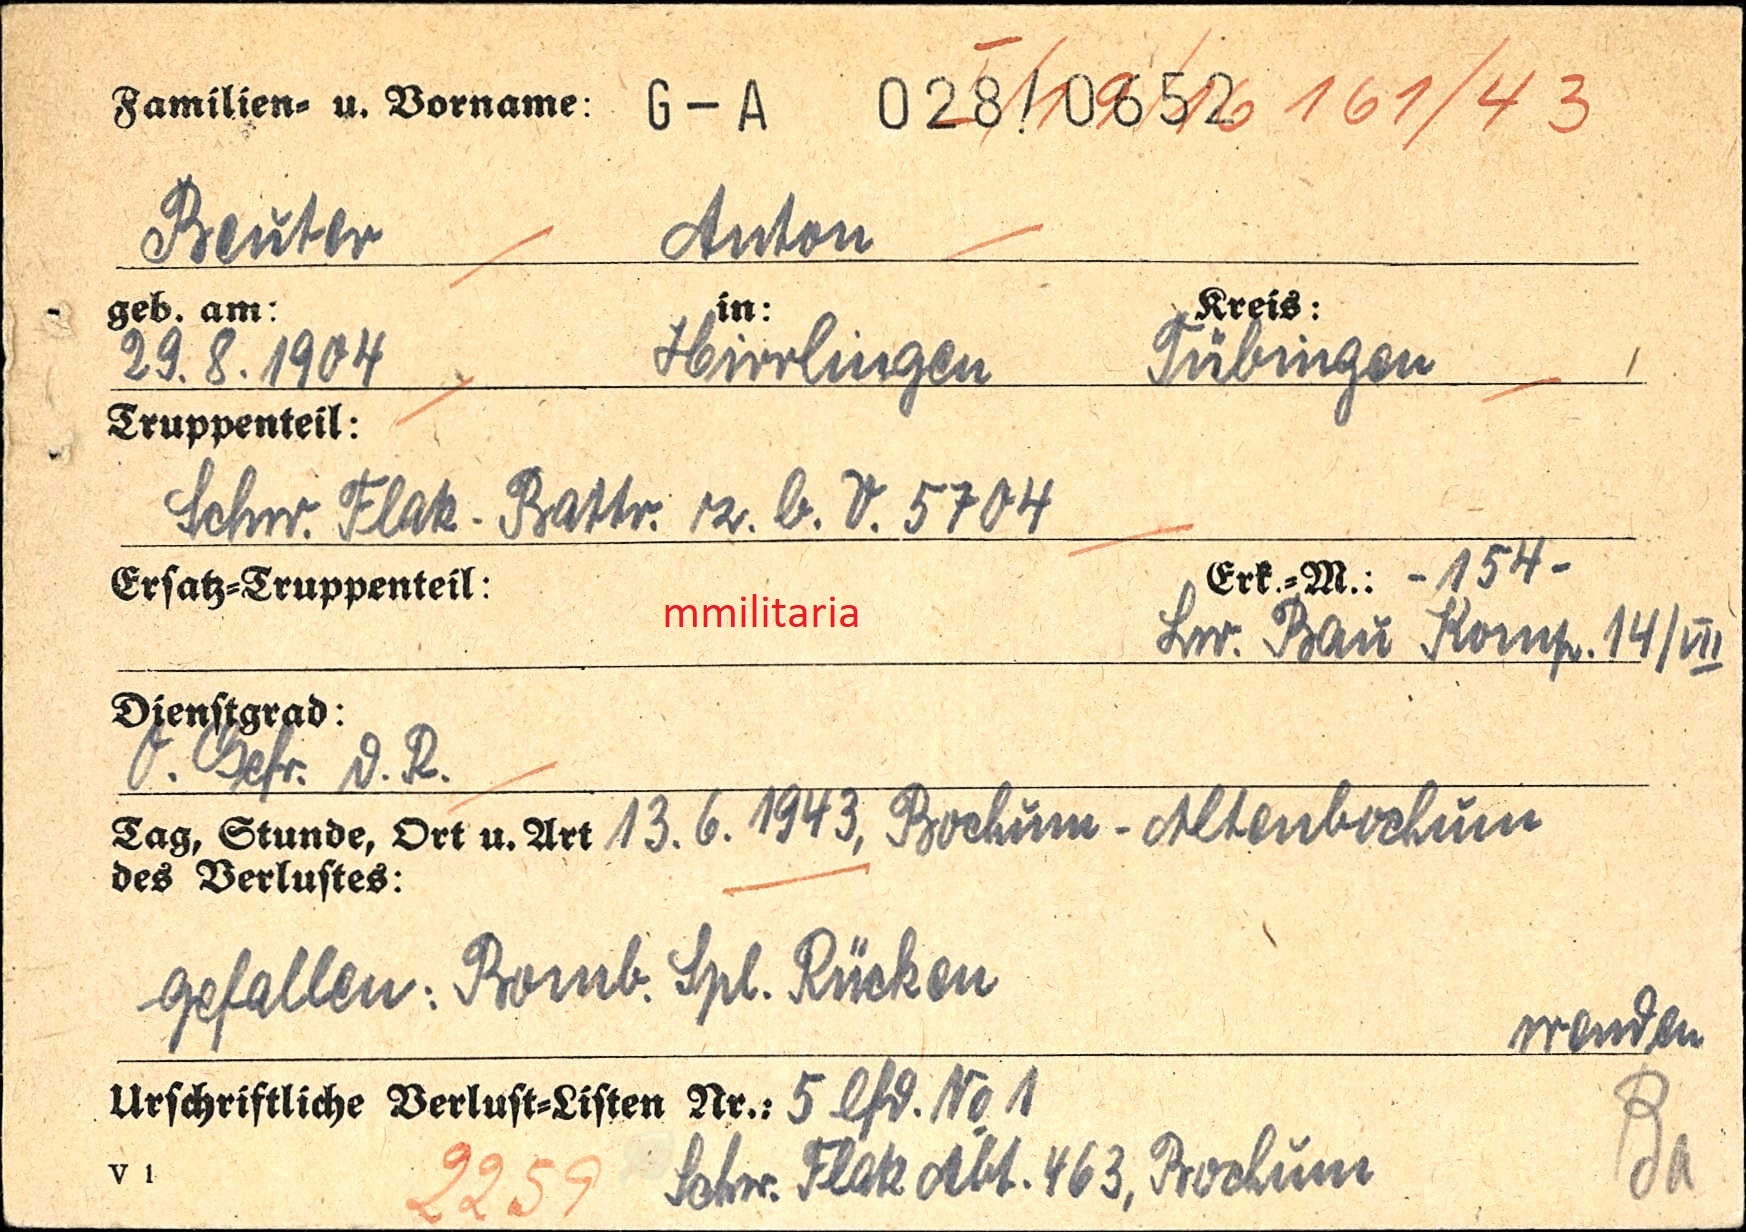 Familien- u. Vorname: G-A 028/0652 161/43
Beuter Anton
geb. am: in: Kreis:
29.8.1904 Hirrlingen Tübingen
Truppenteil:
Schw. Flak-Battr. z. b. V. 5704
Ersatz-Truppenteil: Erk.-M.: -154-
mmilitaria
Lw. Bau Komp. 14/VII
Dienstgrad:
O. Gefr. d. R.
Tag, Stunde, Ort u. Art 13.6.1943, Bochum-Altenbochum
des Verlustes:
gefallen: Bomb. Spl. Rücken
wenden
Urschriftliche Verlust-Listen Nr.: 5 lfd. No 1
Ba
V 1 2259 Schw. Flak Abt. 463, Bochum